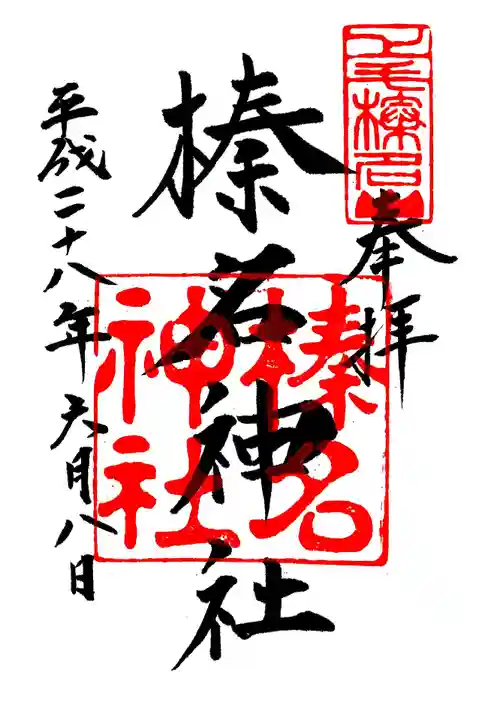 奉拝
榛名神社
平成二十八年六月八日
榛名神社